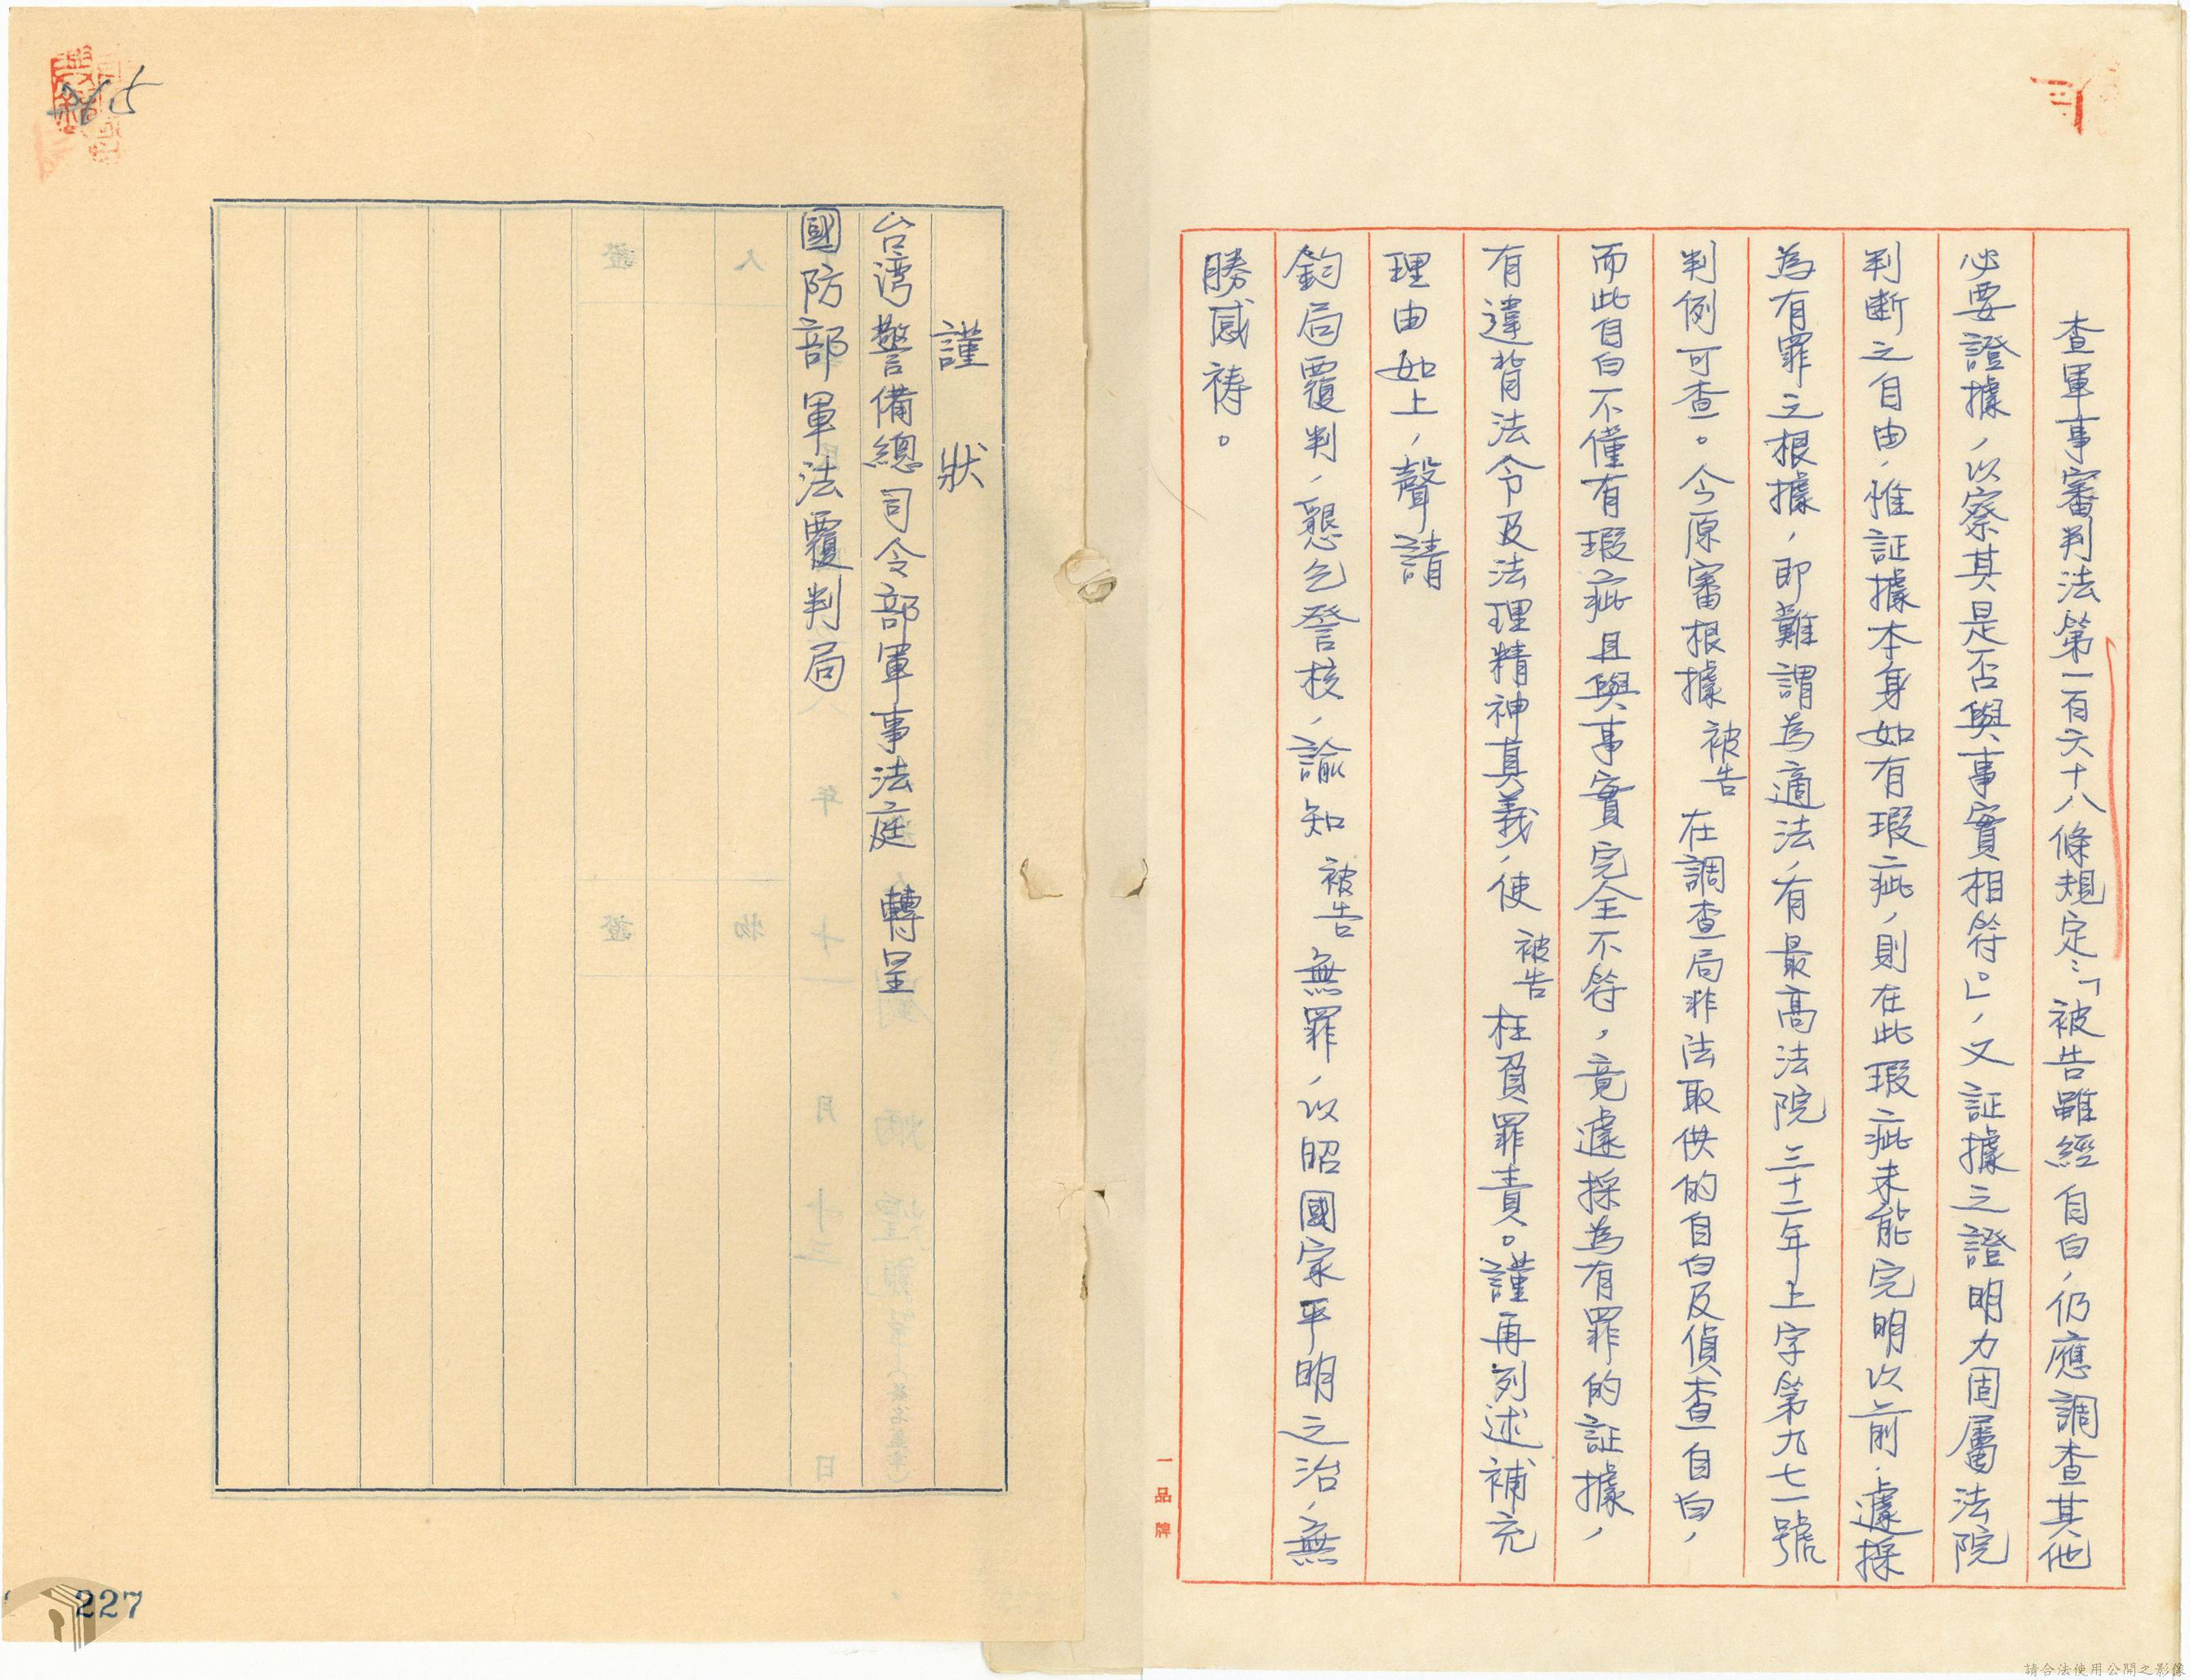 查軍事審判法第一百六十八條規定:「被告雖經自白,仍應調查其他
必要證據,以察其是否與事實相符。」,又証據之證明力固屬法院
判斷之自由,惟証據本身如有瑕疵,則在此瑕疵未能完明以前,遽採
為有罪之根據,即難謂為適法,有最高法院三十二年上字第九七一號
判例可查。今原審根據被告在調查局非法取供的自白及偵查自白,
而此自白不僅有瑕疵且與事實完全不符,竟遽採為有罪的証據,
有違背法令及法理精神真義,使被告枉負罪責。謹再列述補充
理由如上,聲請
鈞局覆判,懇乞詧核,諭知被告無罪,以昭國家平明之治,無
勝感禱。
一品牌
謹狀
台湾警備總司令部軍事法庭 轉呈
國防部軍法覆判局
227
請合法使用公開之影像